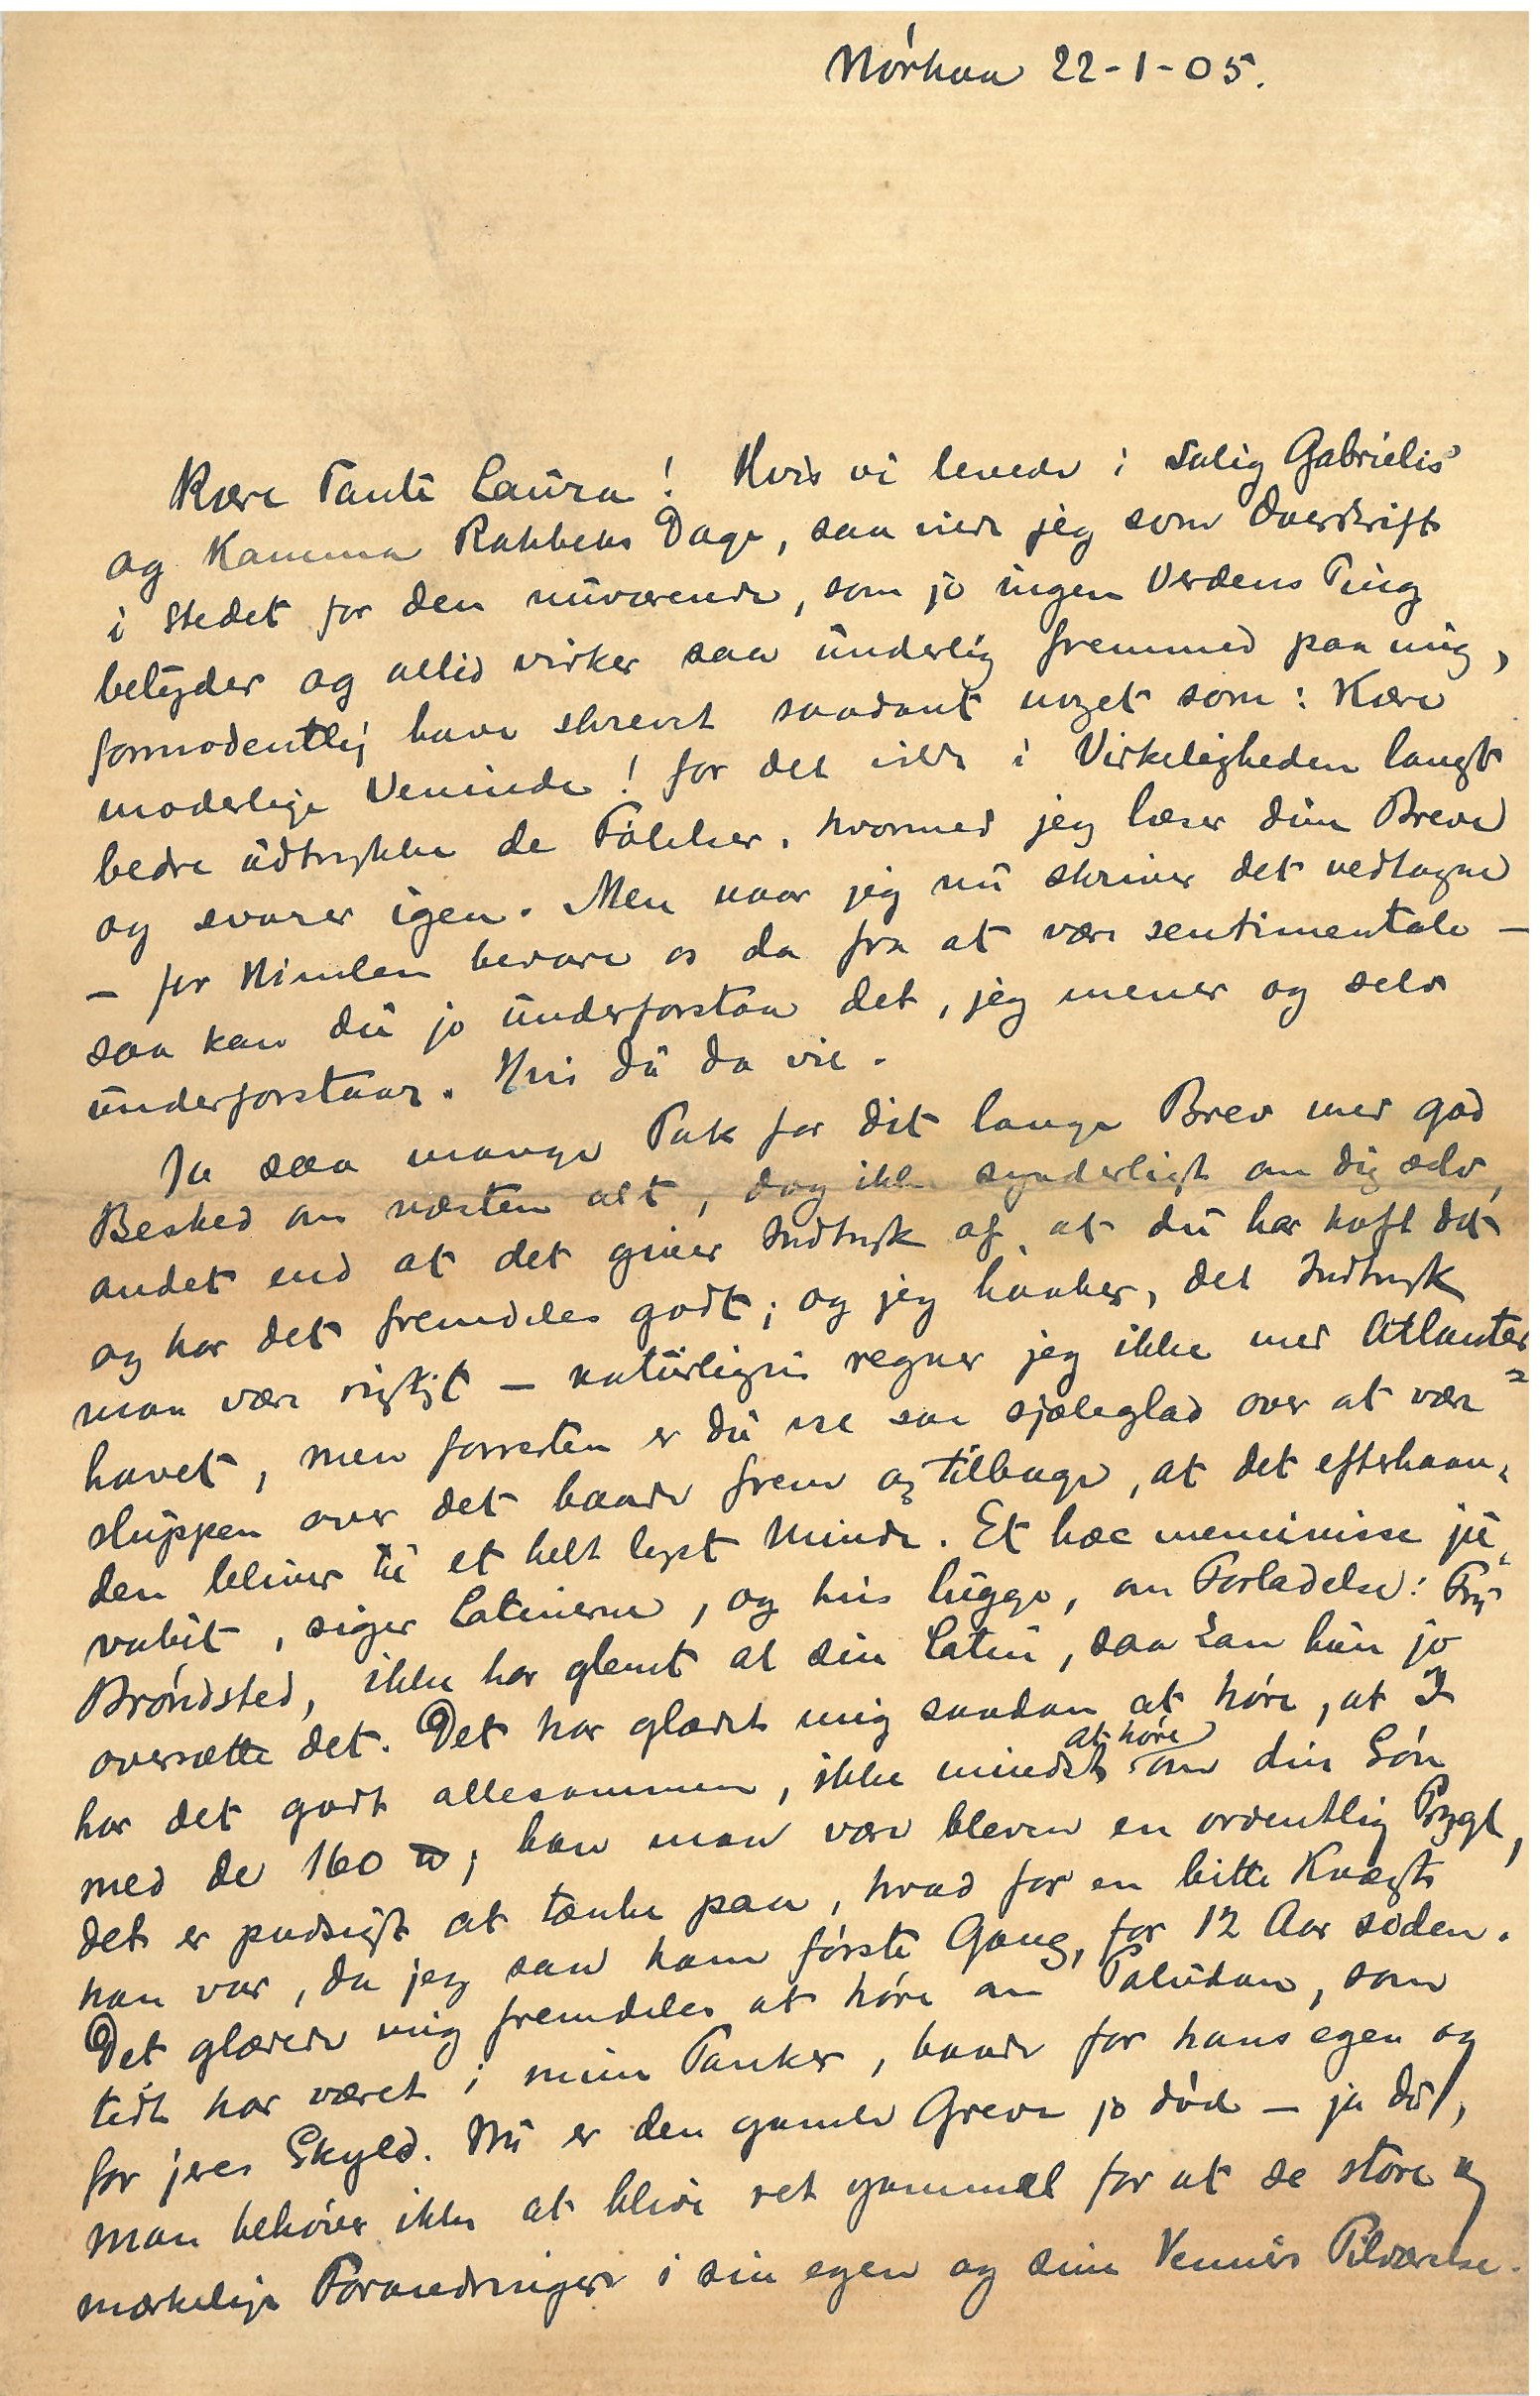 Nörhaa 22-1-05.
Kære Tante Laura! Hvis vi levede i salig Gabrielis
og Kamma Rahbeks Dage, saa vilde jeg som Overskrift
i Stedet for den nuværende, som jo ingen Verdens Ting
betyder og altid virker saa underlig fremmed paa mig,
formodentlig have skrevet saadant noget som: Kære
moderlige Veninde! for det vilde i Virkeligheden langt
bedre udtrykke de Følelser, hvormed jeg læser dine Breve
og svarer igen. Men naar jeg nu skriver det vedtagne
– for Himlen bevare os da fra at være sentimentale –
saa kan du jo underforstaa det, jeg mener og selv
underforstaar. Hvis du da vil.
Ja saa mange Tak for dit lange Brev med god
Besked om næsten alt, dog ikke synderligt om dig selv,
andet end at det giver Indtryk af, at du har haft det
og har det fremdeles godt; og jeg haaber, det Indtryk
maa være rigtigt – naturligvis regner jeg ikke med Atlanter=
havet, men forresten er du vel saa sjæleglad over at være
sluppen over det baade frem og tilbage, at det efterhaan-
den bliver til et helt lyst Minde. Et hæc meminisse ju-
vabit, siger Latinerne, og hvis Lugge, om Forladelse: Fru
Brøndsted, ikke har glemt al sin Latin, saa kan hun jo
oversætte det. Det har glædet mig saadan at høre, at I
har det godt allesammen, ikke mindst at høre om din Søn
med de 160 ℔; han maa være bleven en ordentlig Prygl,
det er pudsigt at tænke paa, hvad for en bitte Knægt
han var, da jeg saa ham første Gang, for 12 Aar siden.
Det glæder mig fremdeles at høre om Paludan, som
tidt har været i mine Tanker, baade for hans egen og
for jeres Skyld. Nu er den gamle Greve jo død – ja du,
man behøver ikke at blive ret gammel for at se store og
mærkelige Forandringer i sin egen og sine Venners Tilværelse.